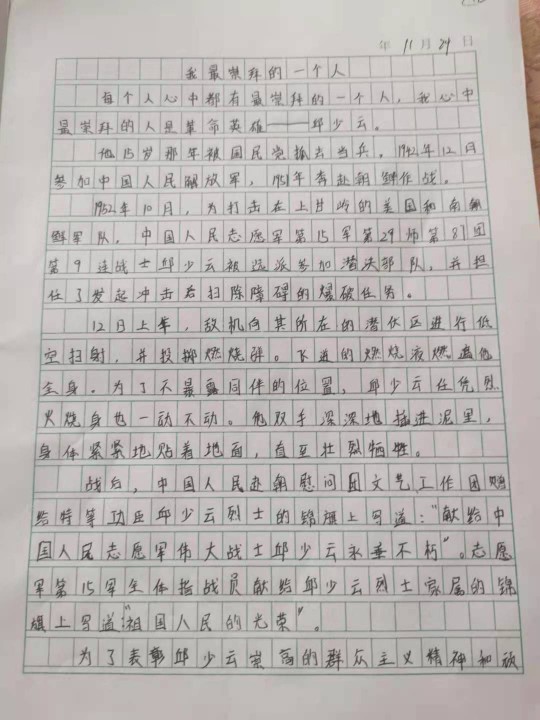 年 11月29日
我最崇拜的一个人
每个人心中都有最崇拜的一个人，我心中
最崇拜的人是革命英雄——邱少云。
他15岁那年被国民党抓去当兵。1942年12月
参加中国人民解放军，1951年奔赴朝鲜作战。
1952年10月，为打击在上甘岭的美国和南朝
鲜军队，中国人民志愿军第15军第29师第87团
第9连战士邱少云被选派参加潜伏部队，并担
任了发起冲击后扫除障碍的爆破任务。
12日上午，敌机向其所在的潜伏区进行低
空扫射，并投掷燃烧弹。飞迸的燃烧液燃着他
全身。为了不暴露同伴的位置，邱少云任凭烈
火烧身也一动不动。他双手深深地插进泥里，
身体紧紧地贴着地面，直至壮烈牺牲。
战后，中国人民赴朝慰问团文艺工作团赠
给特等功臣邱少云烈士的锦旗上写道："献给中
国人民志愿军伟大战士邱少云永垂不朽"。志愿
军第15军全体指战员献给邱少云烈士家属的锦
旗上写道"祖国人民的光荣"。
为了表彰邱少云崇高的群众主义精神和放